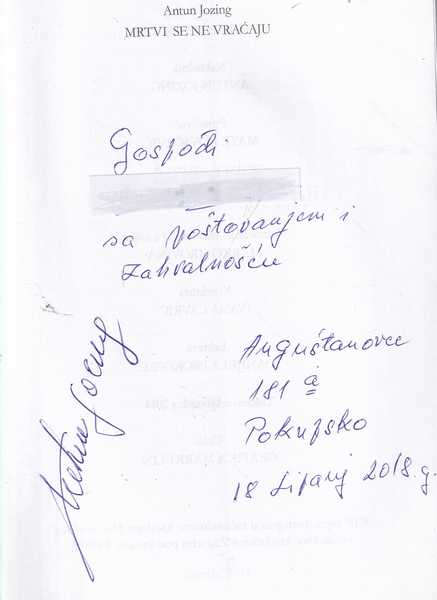 Antun Jozing
MRTVI SE NE VRAĆAJU
Gospođi
sa poštovanjem i
zahvalnošću
Auguštanovec
181 a
Pokupsko
18 lipanj 2018. g.
Antun Jozing